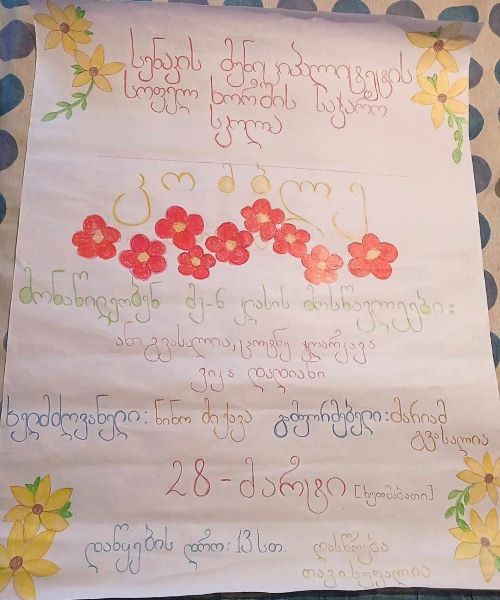 სენაკის მუნიციპალიტეტის
სოფელ ხორშის საჯარო
სკოლა
კომბლე
მონაწილეობენ მე-6 კლასის მოსწავლეები:
ანი გვასალია, ცოტნე ჯღარკავა
ვიკა დადიანი
ხელმძღვანელი: ნინო მიქავა გამფორმებელი: მარიამ
გვასალია
28 - მარტი [ხუთშაბათი]
დაწყების დრო: 13 სთ. დასწრება
თავისუფალია